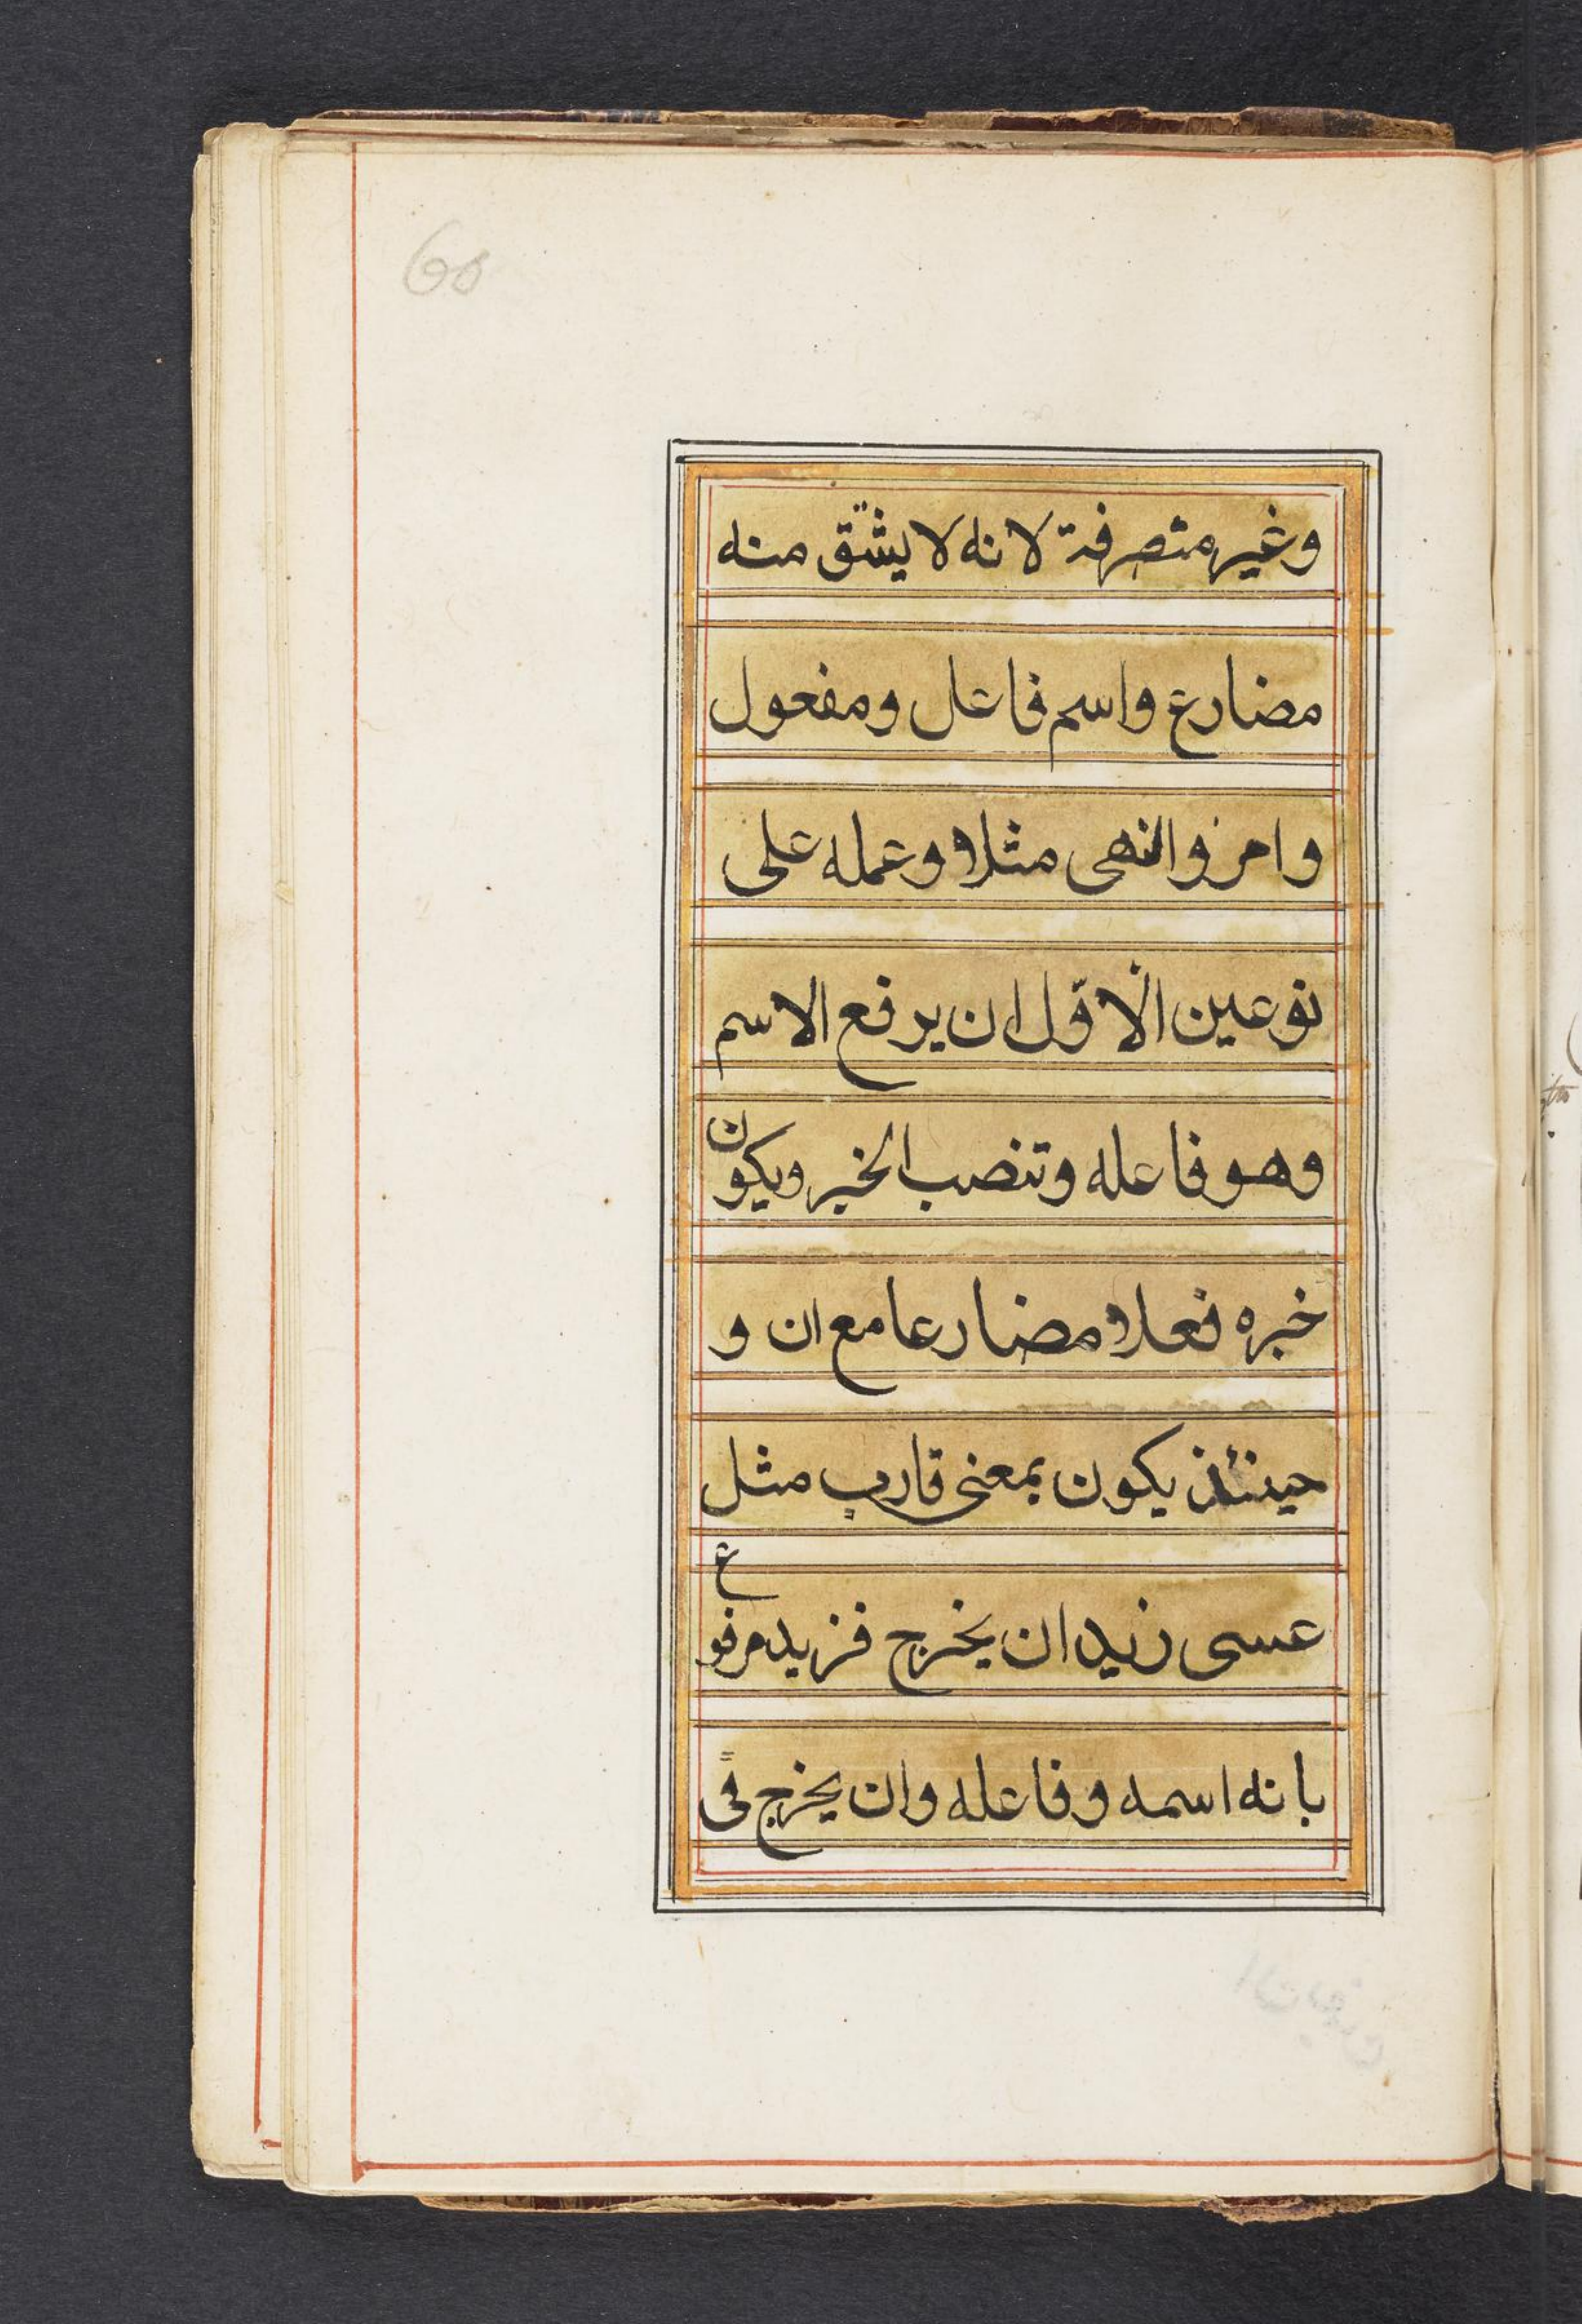 60
وغير متصرفة لانه لا يشتق منه
مضارع واسم فاعل ومفعول
وامر والنهى مثلا وعمله على
نوعين الاول ان يرفع الاسم
وهو فاعله وتنصب الخبر ويكون
خبره فعلا مضارعا مع ان و
حينئذ يكون بمعنى قارب مثل
عسى زيد ان يخرج فزيد مرفوع
بانه اسمه وفاعله وان يخرج فى